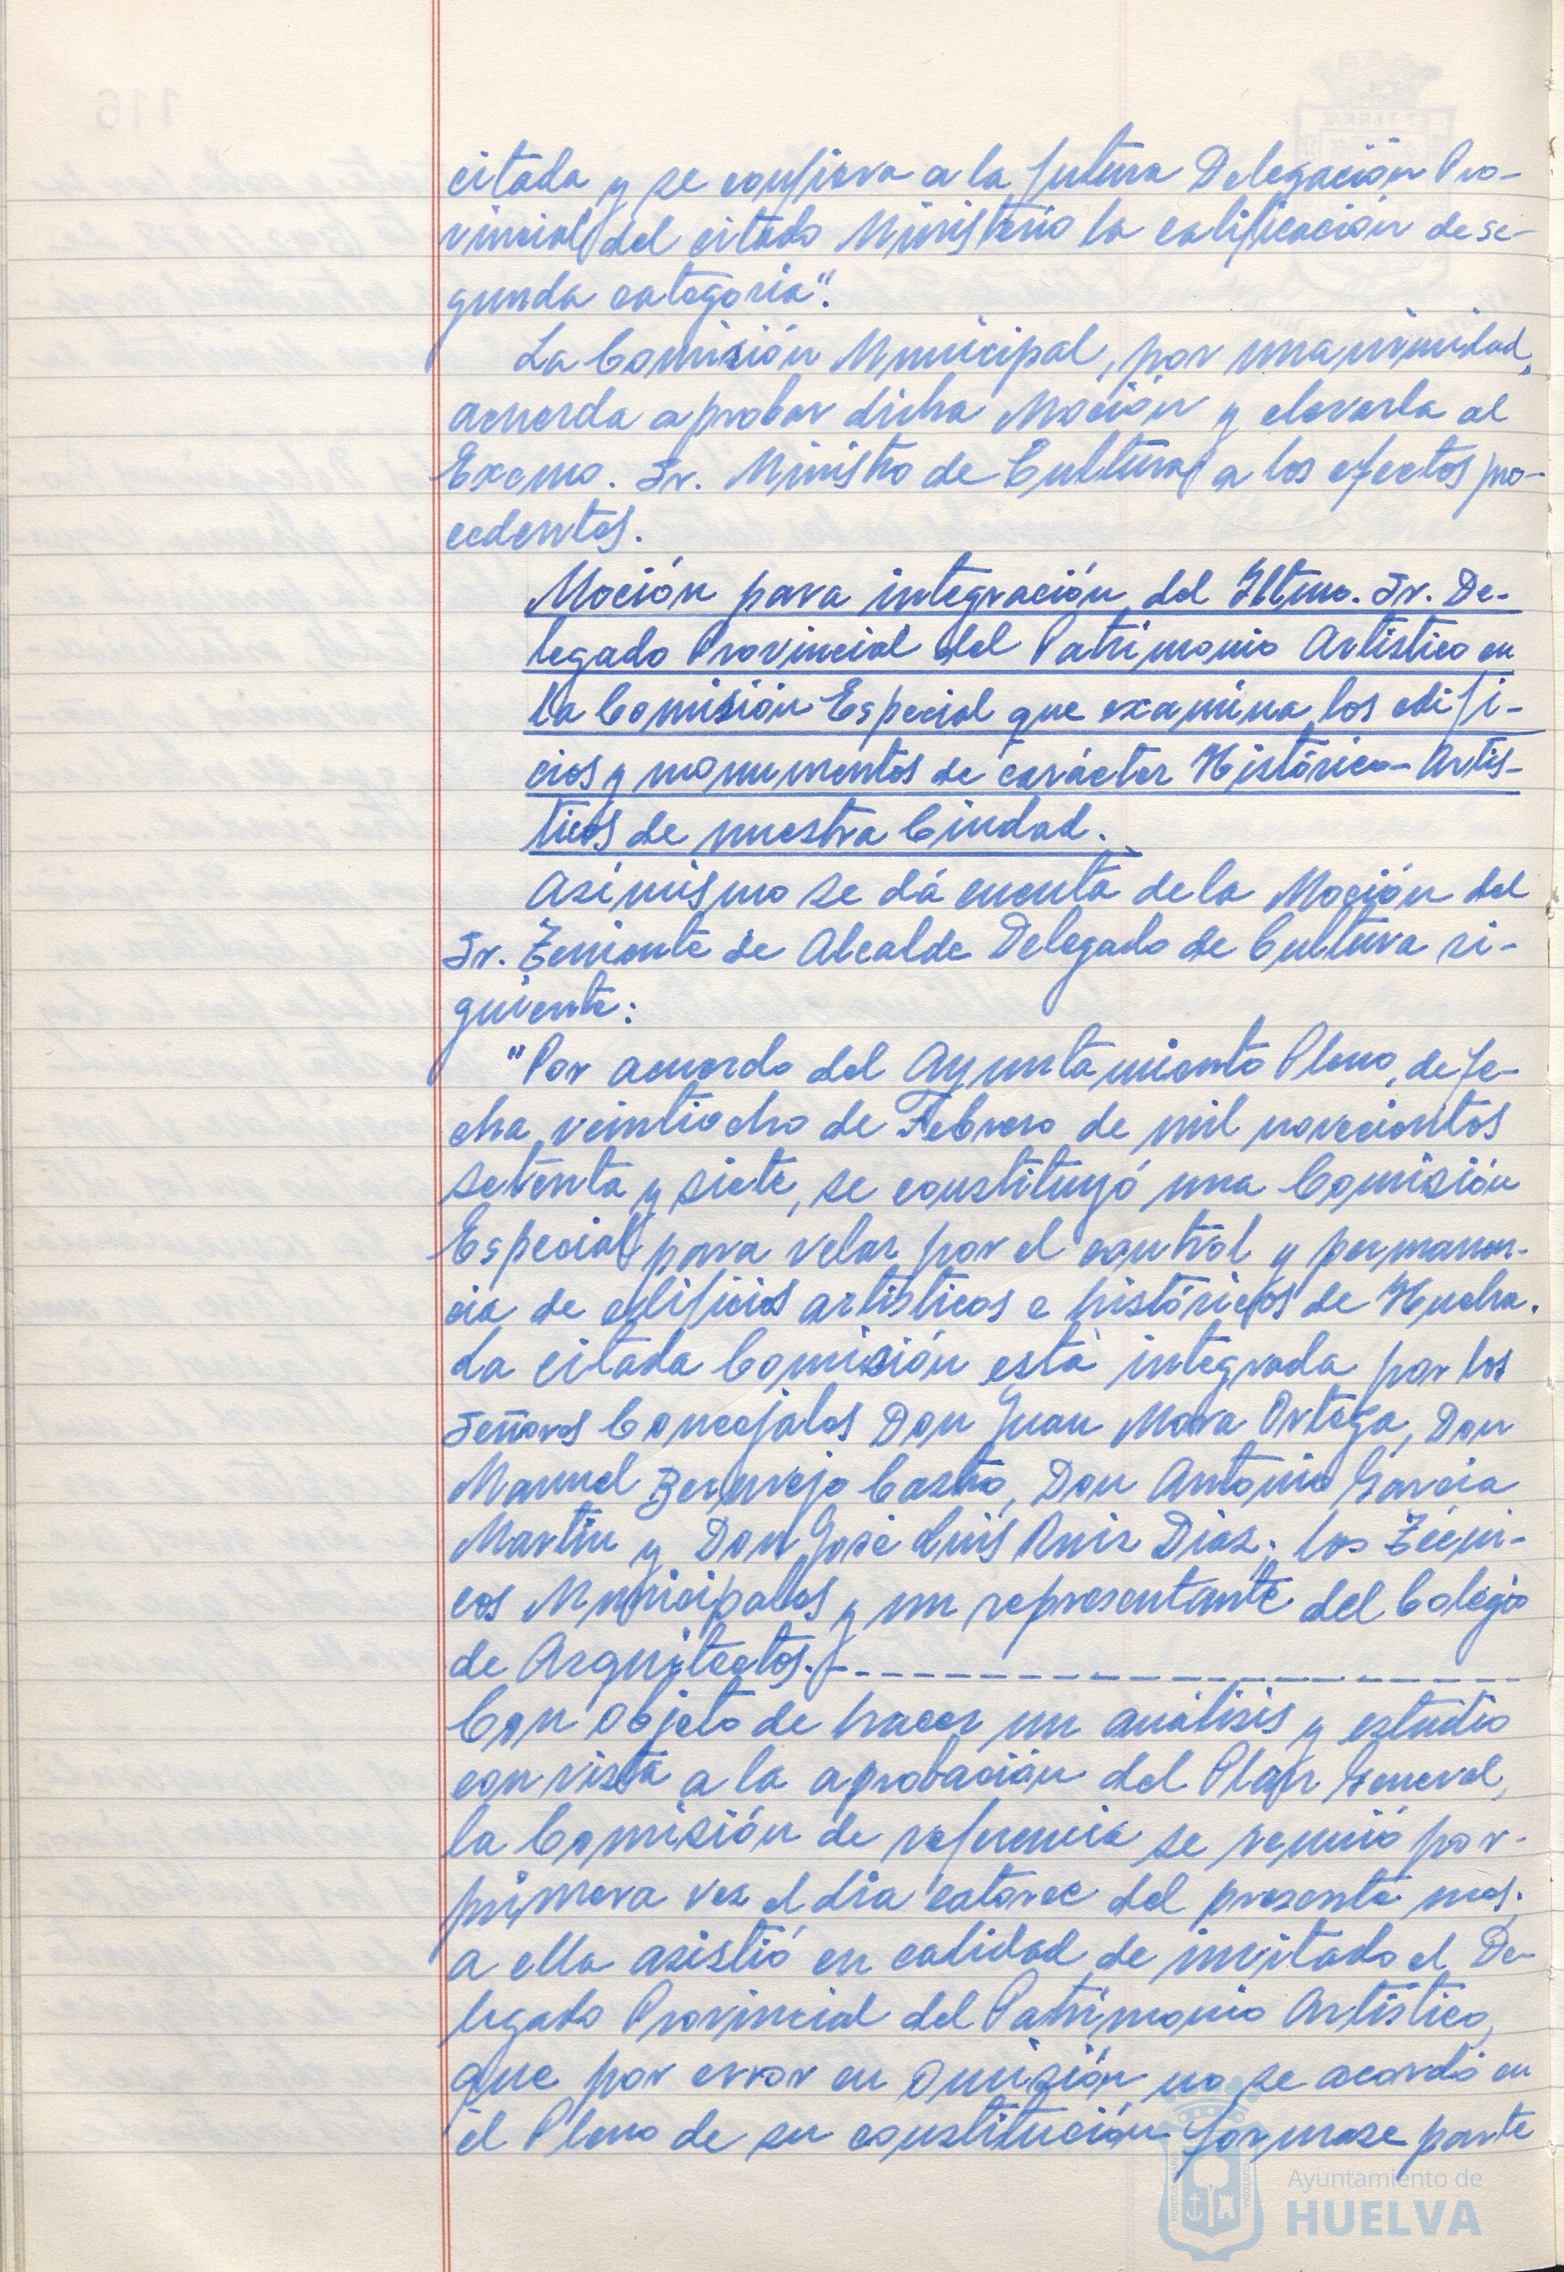 citada y se confiera a la futura Delegación Pro-
vincial del citado Ministerio la calificación de se-
gunda categoria".
La Comisión Municipal, por unanimidad,
acuerda aprobar dicha Moción y elevarla al
Excmo. Sr. Ministro de Cultura a los efectos pro-
cedentes.
Moción para integración del Iltmo. Sr. De-
legado Provincial del Patrimonio Artistico en
la Comisión Especial que examina los edifi-
cios y monumentos de carácter Histórico-Artis-
ticos de nuestra Ciudad.
Asimismo se dá cuenta de la Moción del
Sr. Teniente de Alcalde Delegado de Cultura si-
guiente:
"Por acuerdo del Ayuntamiento Pleno, de fe-
cha veintiocho de Febrero de mil novecientos
setenta y siete, se constituyó una Comisión
Especial para velar por el control y permanen-
cia de edificios artisticos e históricos de Huelva.
La citada Comisión está integrada por los
Señores Concejales Don Juan Mora Ortega, Don
Manuel Bermejo Castro, Don Antonio Garcia
Martin y Don José Luis Ruiz Diaz; los Técni-
cos Municipales y un representante del Colegio
de Arquitectos.-
Con objeto de hacer un análisis y estudio
con vista a la aprobación del Plan General,
la Comisión de referencia se reunió por
primera vez el dia catorce del presente mes;
a ella asistió en calidad de invitado el De-
legado Provincial del Patrimonio Artistico,
que por error en omisión no se acordó en
el Pleno de su constitución formase parte
Ayuntamiento de
HUELVA
116